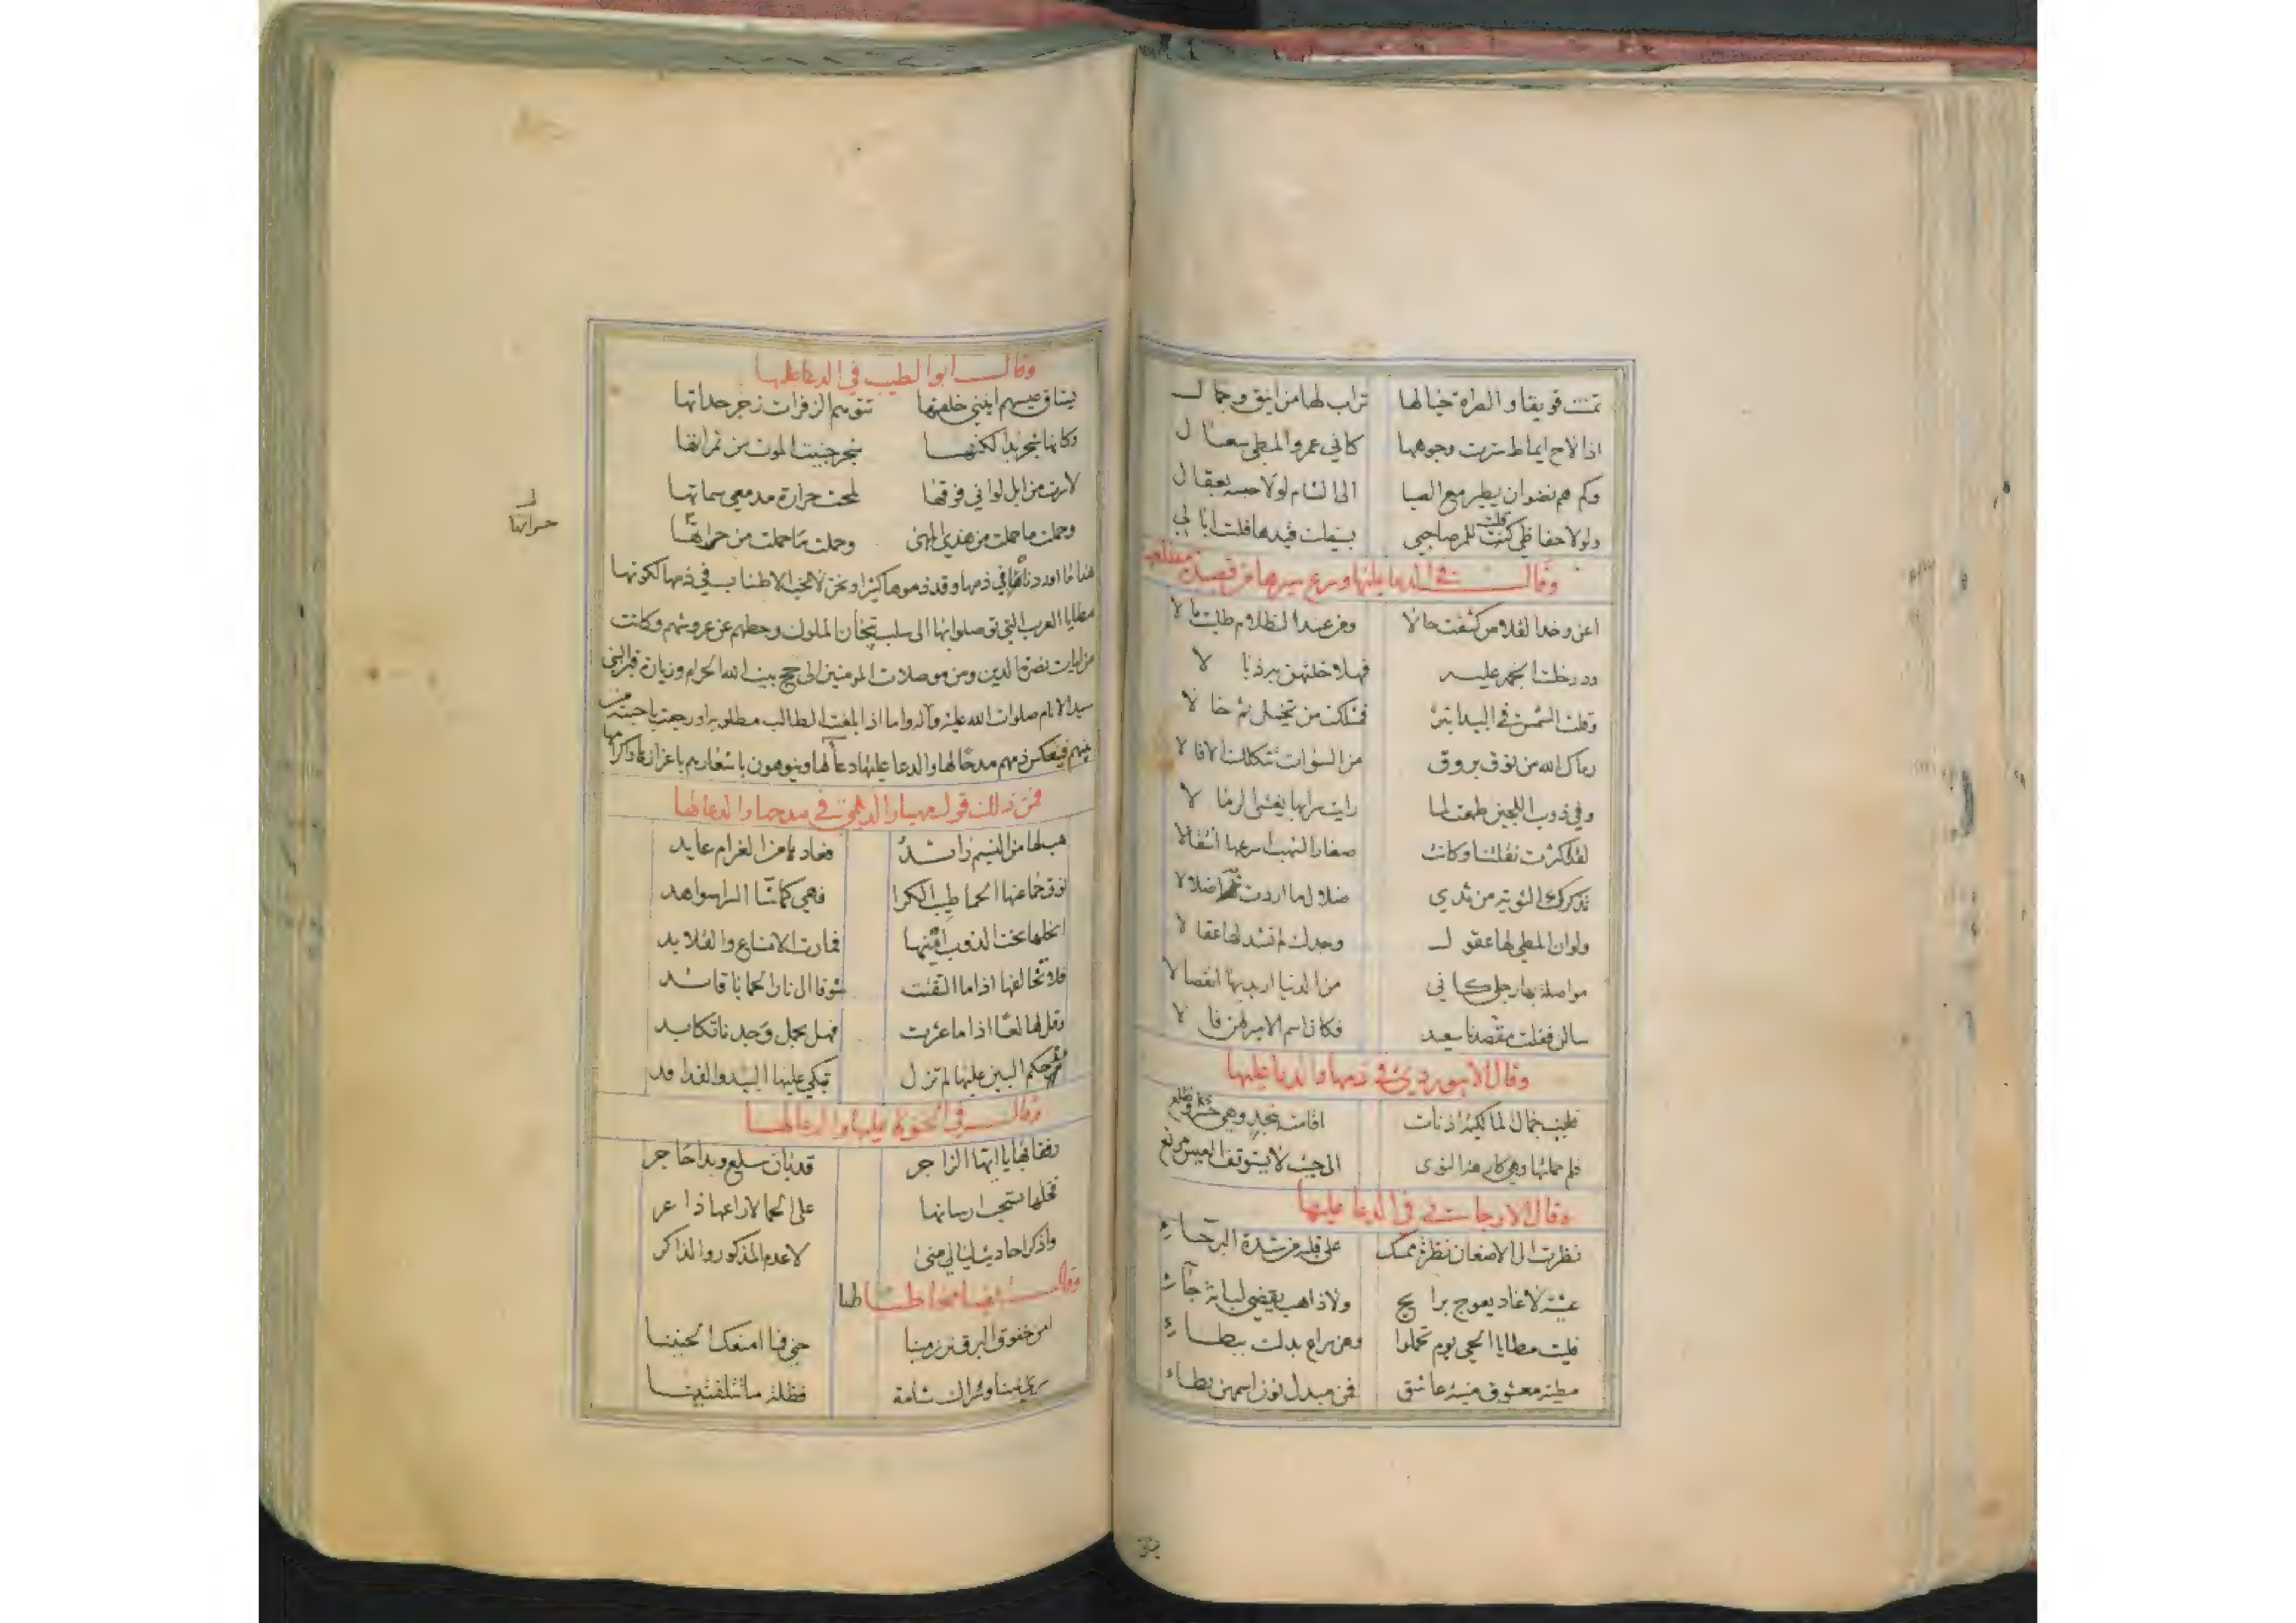 تمنت قويقا والصراة حيالها تراب لها من اينق وجمال
اذا لاح ايماط سترت وجوهها كاني عمرو والمطي سعال
وكم هم نضوان يطير مع الصبا الى الشام لولا حبسه بعقال
ولولا حفاظي قلت للمرء صاحبي بسيفك قيدها فلست ابالي
وقال في الدعا عليها وسرع سيرها من قصيدة مطلعها
اعن وخد القلاص كشفت حالا ومن عند الظلام طلبت مالا
ودر خلت انجمه عليه فهلا خلتهن به ذبالا
وقلت الشمس في البيداء تبر فمثلك من تخيل ثم خالا
رماك الله من نوق بروق من السنوات تثكلك الافالا
وفي ذوب اللجين طمعت لما رايت سرابها يغشى الرمالا
لقد كثرت نقلتنا وكانت صغار الشهب اسرعها انتقالا
تذكرك الثوية من ثدي ضلال ما اردت به ضلالا
ولو ان المطي لها عقول وجدك لم نشد لها عقالا
مواصلة بها رحلي كاني من الدنيا اريد بها انفصالا
سالن فقلت مقصدنا سعيد فكان اسم الامير لهن فالا
وقال الابيوردي في ذمها والدعا عليها
فليت جمال المالكية اذ نات اقامت بنجد وهي حسرى وظلع
فلم حملتها وهي كارهة النوى الى حيث لا يستوقف العيس مرتع
وقال الارجاني في الدعا عليها
نظرت الى الاضعان نظرة ممسك على قلبه من شدة البرحاء
عشية لا غاد يعوج برايح ولا ذاهب يقضي لبانة جاء
فليت مطايا الحي يوم تحملوا وهن سراع بدلت ببطاء
مطية معشوق منية عاشق فمن مبدل نوزا سمهن بطاء
يناق
وقال ابو الطيب في الدعا عليها
يستاق عيسهم انيني خلفها تتوهم الزفرات زجر حداتها
وكانها شجر بدا لكنها شجر جنيت الموت من ثمراتها
لا سرت من ابل لو اني فوقها لمحت حرارة مدمعي سماتها
وحملت ما حملت من هذي المهى وحملت ما حملت من حراتها
حسراتها
هذا ما اوردناه في ذمها وقد ذموها كثيرا ونحن لا نحب الاطناب في ذمها لكونها
مطايا العرب التي توصلوا بها الى سلب تيجان الملوك وحطهم عن عروشهم وكانت
من ايات نصرة الدين ومن موصلات المومنين الى حج بيت الله الحرام وزيارة قبر النبي
سيد الانام صلوات الله عليه وآله واما اذا بلغت الطالب مطلوبه او رجعت باحبته
منهم فينعكس ذمهم مدحا لها والدعا عليها دعآ لها وينوهون باشعارهم باعزازها واكرامها
فمن ذلك قول مهيار الديلمي في مدحها والدعا لها
هب لها من النسيم راشد فعاد بها من الغرام عايد
فهي كما شا السرا سواهد
فمارت الانساع والقلايد
فلا تخالفها اذا ما التفتت شوقا الى نار الحما يا قائد
وقل لها لعا اذا ما عثرت فهل بحمل وجدنا تكابد
حكم البين عليها لم تزل تبكي عليها البيد والفدافد
وقال في الحنوة عليها والدعا لها
رفقا بها يا ايها الزاجر قد بان سلع وبدا حاجر
فخلها تسحب ارسانها على الحما لا راعها ذاعر
واذكر احاديث ليالي منى لا عدم المذكور والذاكر
وقال ايضا مخاطبا لها
امن خفوق البرق ترزمينا حني فما امنعك الحنينا
سرى يمينا وسراك شامة فضلة ما تتلفتينا